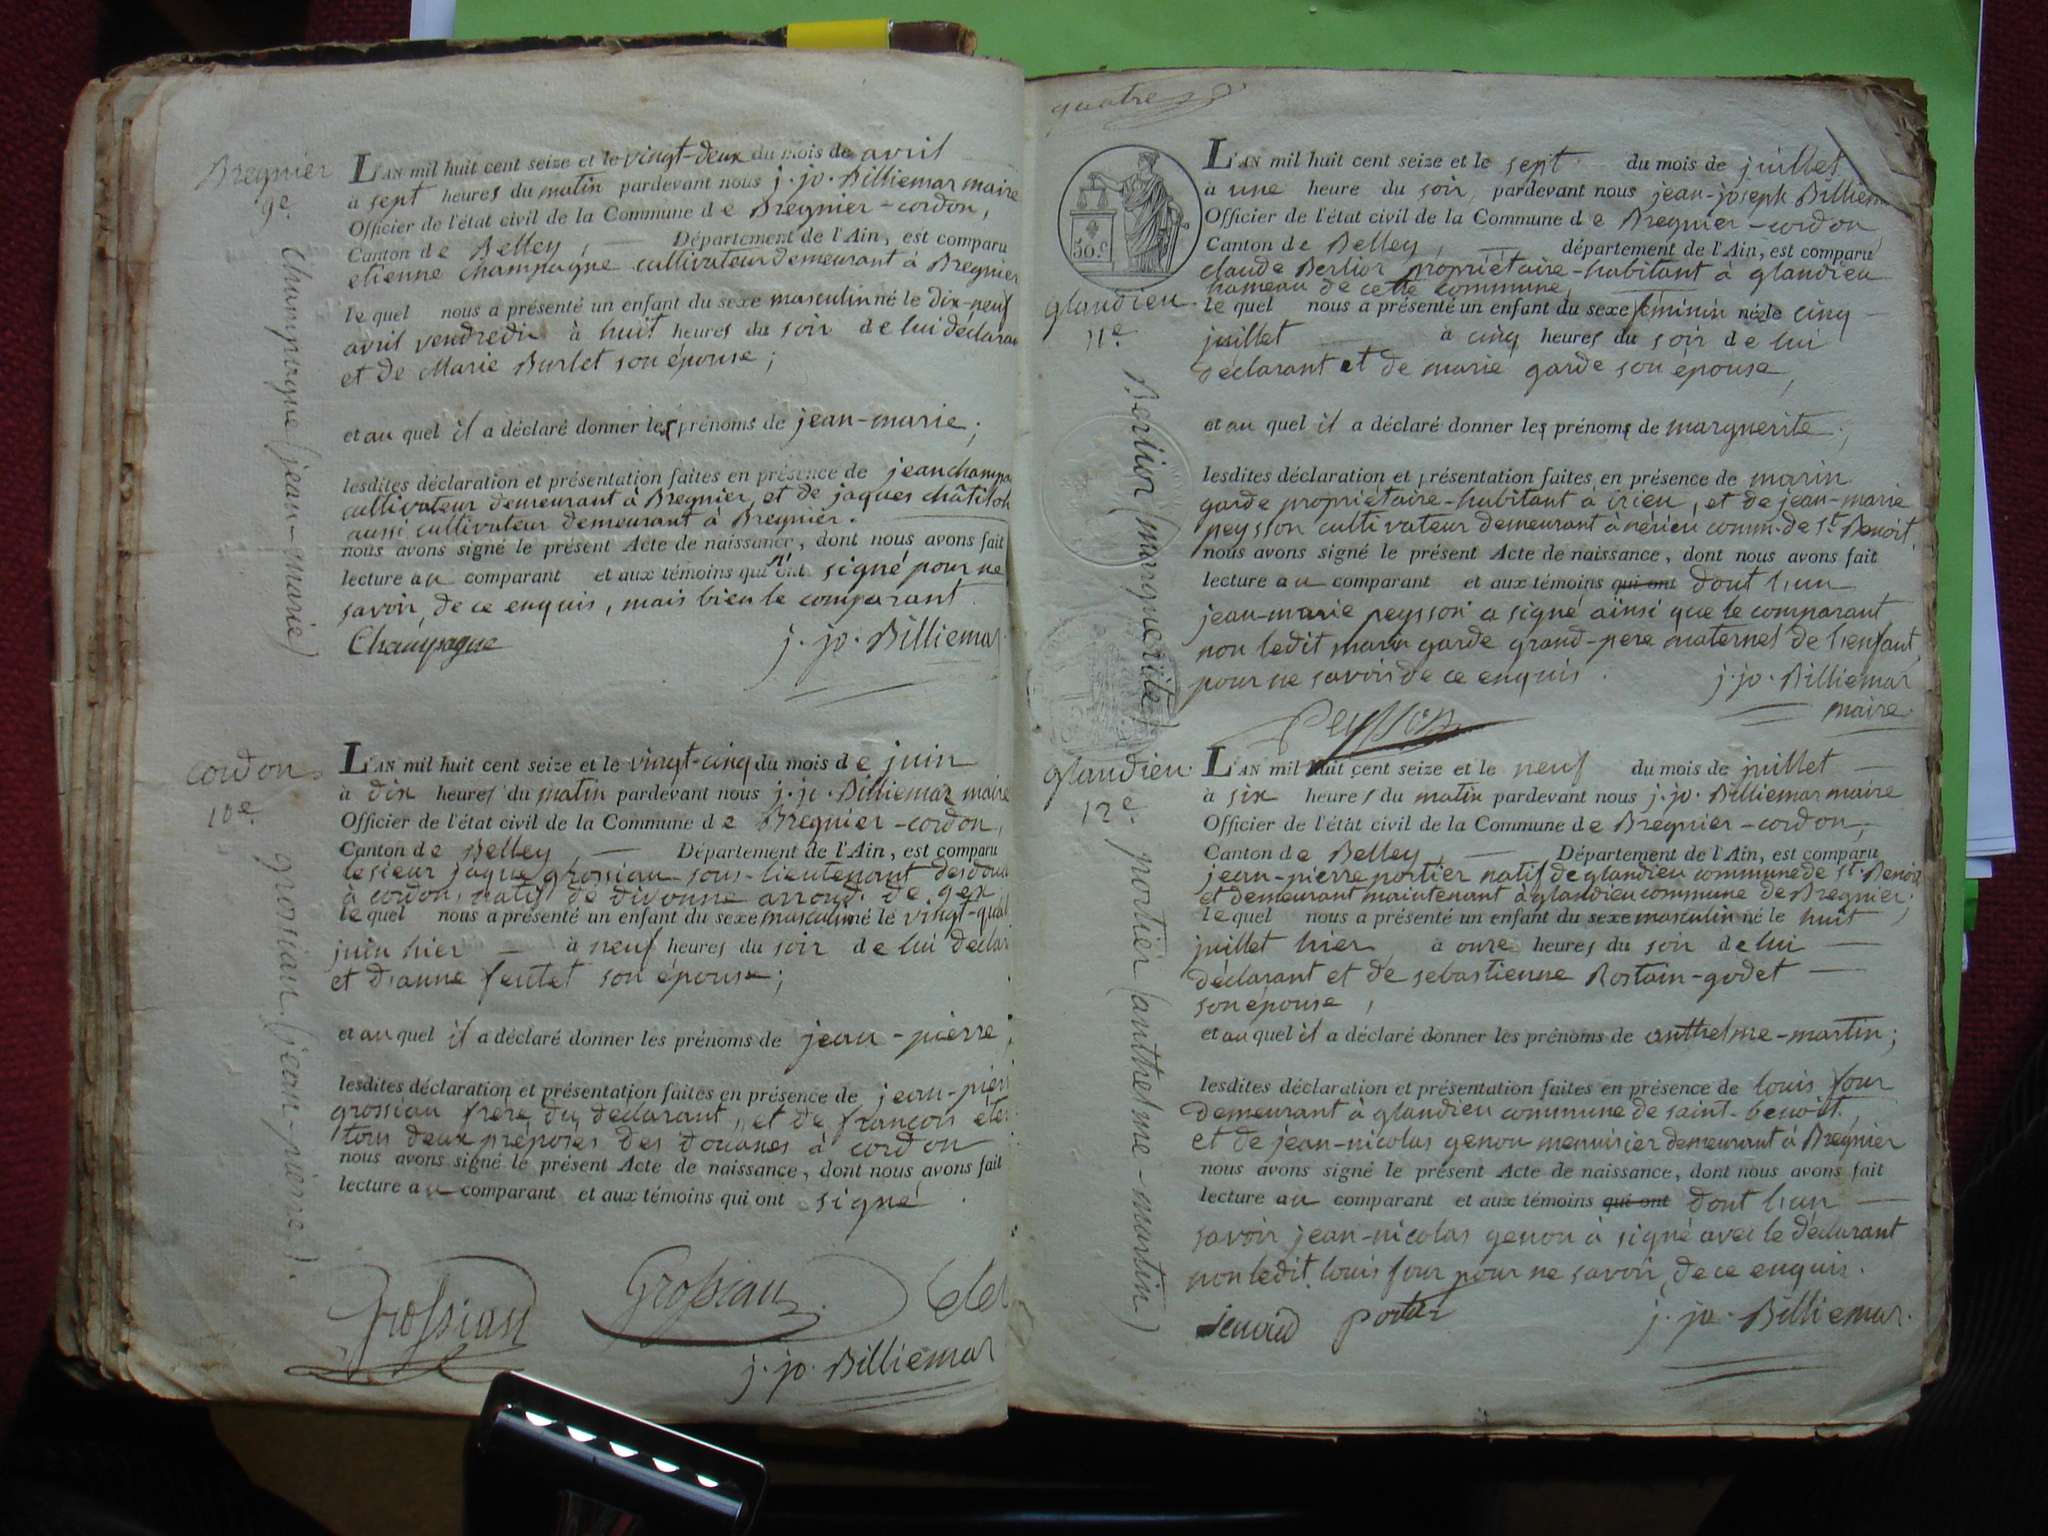 Bregnier
9e.
champagne (jean-marie)
L'AN mil huit cent seize et le vingt-deux du mois de avril
à sept heures du matin pardevant nous j. jo. Billiemaz maire
Officier de l'état civil de la Commune de Bregnier-cordon,
Canton de Belley, — Département de l'Ain, est comparu
etienne champagne cultivateur demeurant à Bregnier
le quel nous a présenté un enfant du sexe masculin né le dix-neuf
avril vendredi à huit heures du soir de lui déclarant
et de Marie Burlet son épouse;
et au quel il a déclaré donner les prénoms de jean-marie;
lesdites déclaration et présentation faites en présence de jean champa
cultivateur demeurant à Bregnier, et de jaques châtillon
aussi cultivateur demeurant à Bregnier.
nous avons signé le présent Acte de naissance, dont nous avons fait
lecture au comparant et aux témoins qui n'ont signé pour ne
savoir, de ce enquis, mais bien le comparant.
Champagne j. jo. Billiemaz
cordon
10e.
grossian (jean-pierre).
L'AN mil huit cent seize et le vingt-cinq du mois de juin
à dix heures du matin pardevant nous j. jo. Billiemaz maire
Officier de l'état civil de la Commune de Bregnier-cordon,
Canton de Belley, — Département de l'Ain, est comparu
le sieur jaque grossian sous-lieutenant des doua
à cordon, natif de divonne arrond. de gex
le quel nous a présenté un enfant du sexe masculin né le vingt-quat
juin hier — à neuf heures du soir de lui déclar
et d'anne feutet son épouse;
et au quel il a déclaré donner les prénoms de jean-pierre;
lesdites déclaration et présentation faites en présence de jean-pier
grossian frère du déclarant, et de françois
tous deux préposés des douanes à cordon
nous avons signé le présent Acte de naissance, dont nous avons fait
lecture au comparant et aux témoins qui ont signé.
Grossian Grossian
j. jo. Billiemaz
quatre
50.c
glandieu
11e.
Berlior (marguerite)
L'AN mil huit cent seize et le sept du mois de juillet
à une heure du soir, pardevant nous jean-joseph Billiem
Officier de l'état civil de la Commune de Bregnier-cordon
Canton de Belley, — département de l'Ain, est comparu
claude Berlior propriétaire-habitant à glandieu
hameau de cette commune,
le quel nous a présenté un enfant du sexe féminin née le cinq
juillet — à cinq heures du soir de lui
déclarant et de marie garde son épouse,
et au quel il a déclaré donner les prénoms de marguerite;
lesdites déclaration et présentation faites en présence de marin
garde propriétaire-habitant à irieu, et de jean-marie
peysson cultivateur demeurant à nerieu comm. de st. Benoit.
nous avons signé le présent Acte de naissance, dont nous avons fait
lecture au comparant et aux témoins qui ont dont l'un
jean-marie peysson a signé ainsi que le comparant
non ledit marin garde grand-pere maternel de l'enfant,
pour ne savoir de ce enquis. j. jo. Billiemaz
maire.
Peysson
glandieu.
12e.
portier (anthelme-martin)
L'AN mil huit cent seize et le neuf du mois de juillet —
à six heures du matin pardevant nous j. jo. Billiemaz maire
Officier de l'état civil de la Commune de Bregnier-cordon,
Canton de Belley, — Département de l'Ain, est comparu
jean-pierre portier natif de glandieu commune de st. Benoit
et demeurant maintenant à glandieu commune de Bregnier;
le quel nous a présenté un enfant du sexe masculin né le huit
juillet hier, à onze heures du soir de lui —
déclarant et de sebastienne Rostain-godet —
son épouse,
et au quel il a déclaré donner les prénoms de anthelme-martin;
lesdites déclaration et présentation faites en présence de louis four
demeurant à glandieu commune de saint-benoit,
et de jean-nicolas genou menuisier demeurant à Bregnier
nous avons signé le présent Acte de naissance, dont nous avons fait
lecture au comparant et aux témoins qui ont dont l'un —
savoir jean-nicolas genou a signé avec le déclarant
non ledit louis four pour ne savoir, de ce enquis.
portier j. jo. Billiemaz.